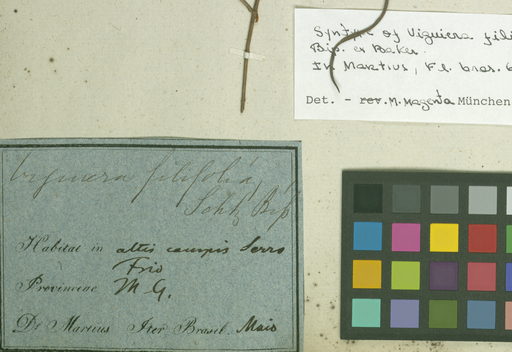 Syntype of Viguiera fili
Bip. ex Baker.
In Martius, Fl. bras. 6
Det. - rev. M. Magenta München
Viguiera filifolia,
Schtz Bip
Habitat in altis campis Serro
Frio
Provinciae M G.
Dr Martius Iter Brasil. Maio